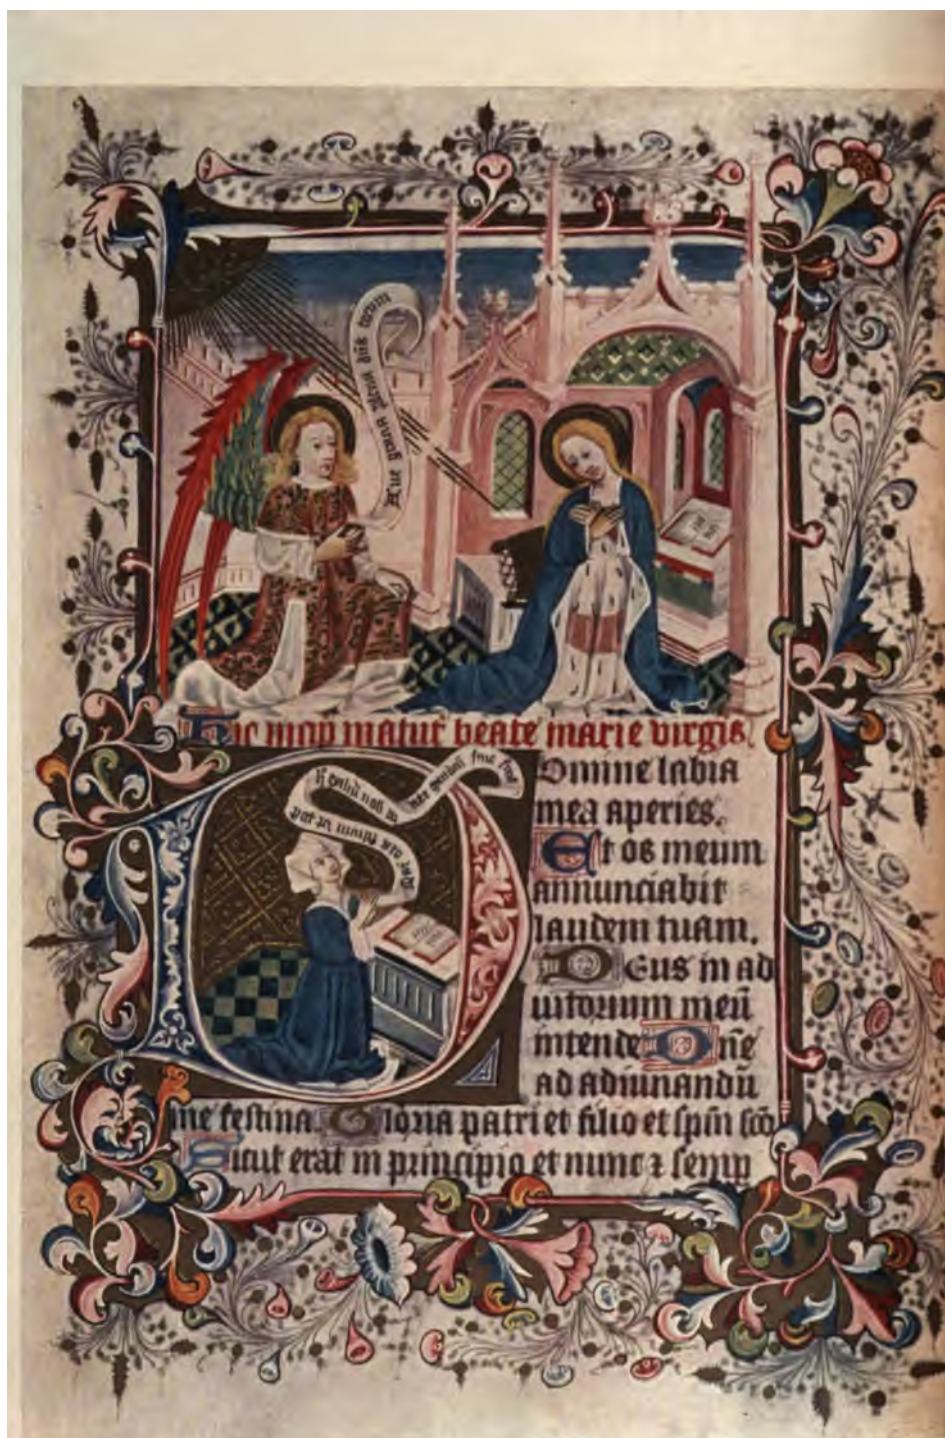 Aue gracia plena dn̄s tecum
Hic incip̄ matut̄ beate marie virgis.
Domine labia
mea aperies.
Et os meum
annunciabit
laudem tuam.
Deus in ad
iutorium meū
intende Dn̄e
ad adiuuandū
me festina. Gloria patri et filio et sp̄ui sc̄o
Sicut erat in principio et nunc ⁊ semp̄